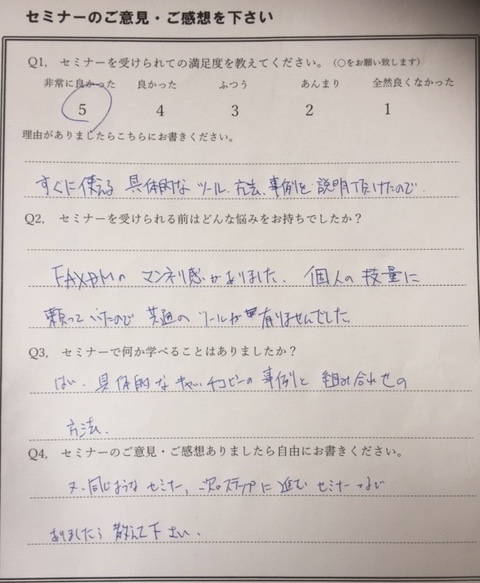 セミナーのご意見・ご感想を下さい
Q1, セミナーを受けられての満足度を教えてください。（○をお願い致します）
非常に良かった 良かった ふつう あんまり 全然良くなかった
5 4 3 2 1
理由がありましたらこちらにお書きください。
すぐに使える 具体的な ツール、方法、事例を 説明頂けたので。
Q2, セミナーを受けられる前はどんな悩みをお持ちでしたか？
FAXDMの マンネリ感がありました。個人の技量に
頼っていたので 共通の ツールが有りませんでした。
Q3, セミナーで何か学べることはありましたか？
はい、具体的なキャッチコピーの事例と 組み合わせの
方法。
Q4, セミナーのご意見・ご感想ありましたら自由にお書きください。
又、同じような セミナー、次のステップに進む セミナーなど
ありましたら 教えて下さい。